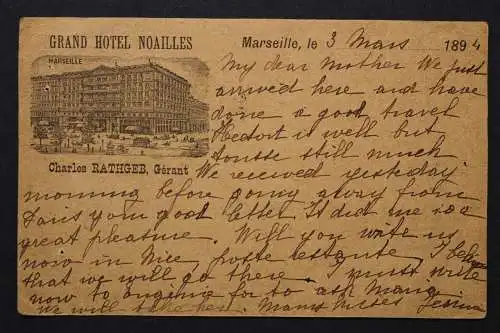 GRAND HOTEL NOAILLES
MARSEILLE
Charles RATHGEB, Gérant
Marseille, le 3 Mars 1894
My dear Mother We just
arrived here and have
done a good travel
Hector is well but
tousse still much
We received yesterday
morning before going away from
Paris your good letter. It did me so a
great pleasure. Will you write us
now in Nice, poste restante, I believe
that we will go there I must write
now to for to ask
we will take her. Many kisses